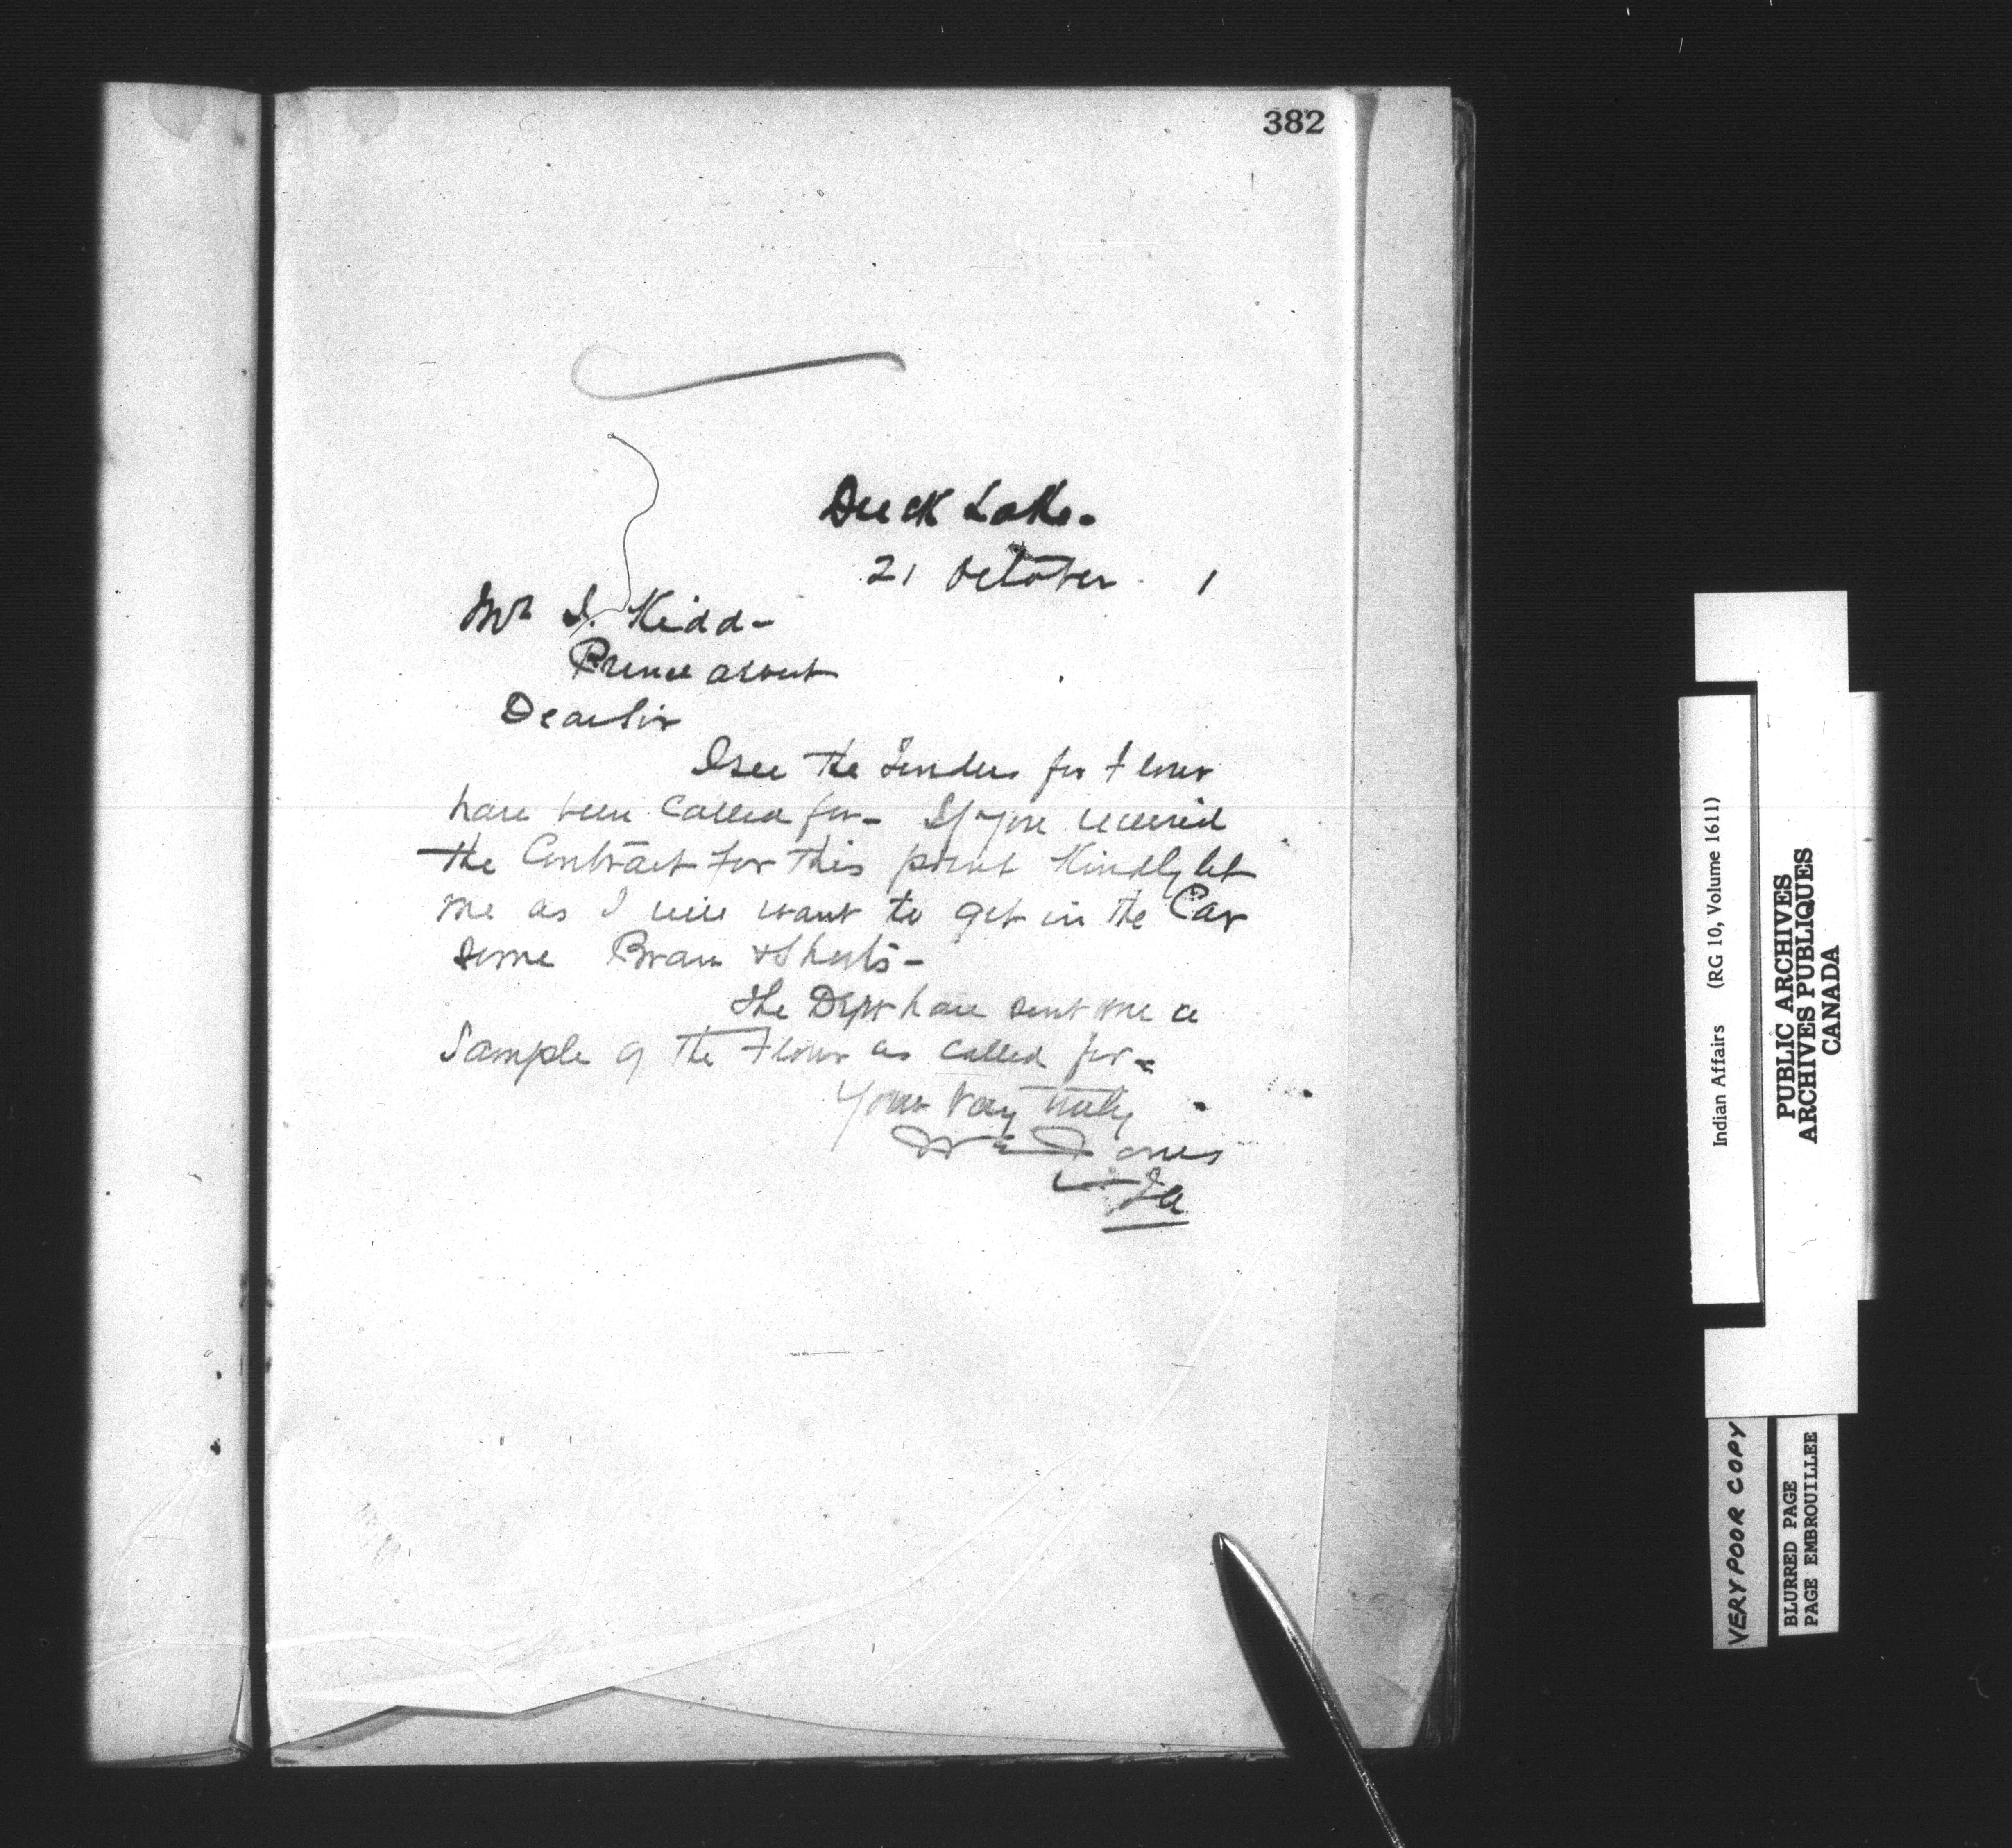 382
Duck Lake.
21 October 1
Mr I. Kidd-
Prince Albert
Dear Sir
I see the Tenders for Flour
have been Called for- If you received
the Contract for this point Kindly let
me as I will want to get in the Car
some Bran & Shorts-
The Dept have sent me a
Sample of the Flour as called for-
Yours Very truly
W E Jones
IA
Indian Affairs (RG 10, Volume 1611)
PUBLIC ARCHIVES
ARCHIVES PUBLIQUES
CANADA
VERY POOR COPY
BLURRED PAGE
PAGE EMBROUILLEE